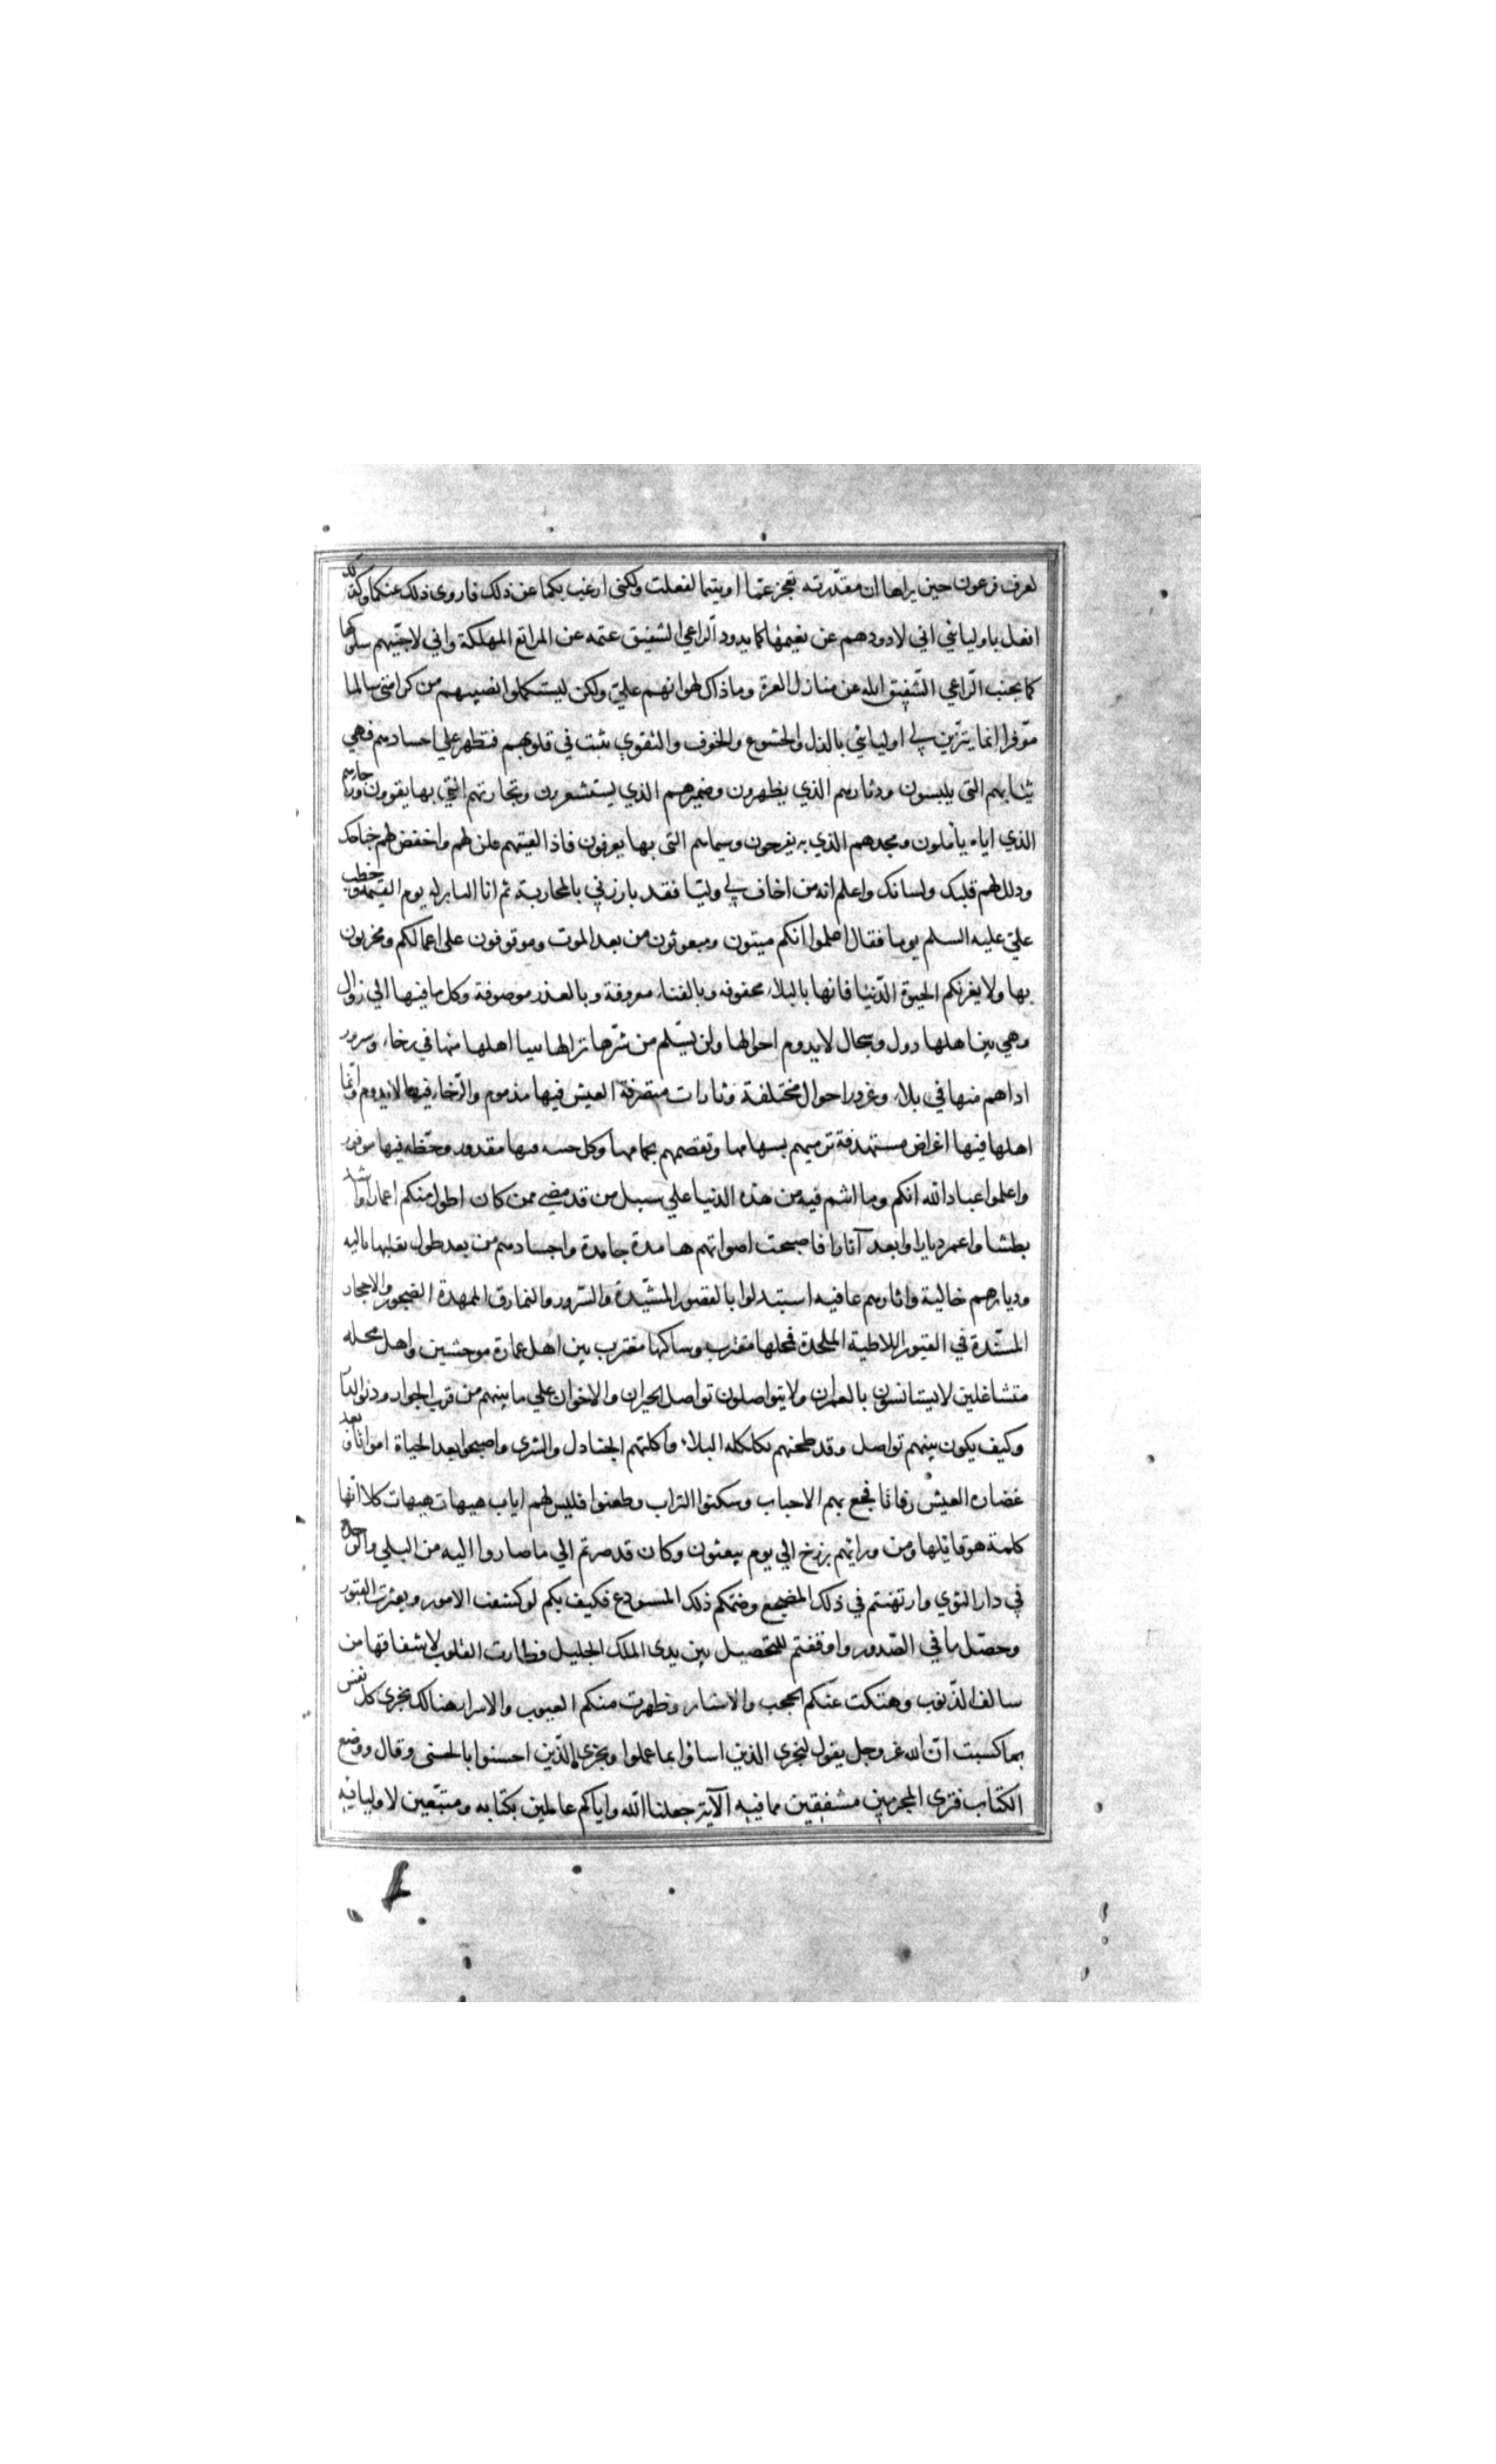 لعرف فرعون حين يراها ان مقدرته تعجز عما اوتيتما لفعلت ولكنى ارغب بكما عن ذلك فازوى ذلك عنكما وكذلك
افعل باوليائي اني لاذودهم عن نعيمها كما يذود الراعي الشفيق غنمه عن المراتع المهلكة واني لاجنبهم سلوكها
كما يجنب الراعي الشفيق ابله عن منازل العرة وما ذاك لهوانهم عليّ ولكن ليستكملوا نصيبهم من كرامتى سالما
موّفرا انما يتزين لي اوليائي بالذل والخشوع والخوف والتقوي يثبت في قلوبهم فتظهر علي اجسادهم فهي
ثيابهم التى يلبسون ودثارهم الذي يظهرون وضميرهم الذي يستشعرون وتجارتهم التي بها يفوزون ورجاؤهم
الذي اياه يأملون ومجدهم الذي به يفرحون وسيماهم التى بها يعرفون فاذا لقيتهم فلن لهم واخفض لهم جناحك
وذلل لهم قلبك ولسانك واعلم انه من اخاف لي وليّا فقد بارزني بالمحاربة ثم انا الثاير له يوم القيمة وخطب
علي عليه السلم يوما فقال اعلموا انكم ميتون ومبعوثون من بعد الموت وموقوفون على اعمالكم ومجزيون
بها ولا يغرنكم الحيوة الدّنيا فانها بالبلاء محفوفه وبالفناء معروفة وبالعذر موصوفة وكل ما فيها الي زوال
وهي بين اهلها دول وسجال لا يدوم احوالها ولن يسلم من شرها نزالها بينا اهلها منها في رخاء وسرور
اذاهم منها في بلاء وغرور احوال مختلفة وتارات متصرفة العيش فيها مذموم والرخاء فيها لا يدوم وانما
اهلها فيها اغراض مستهدفة ترميهم بسهامها وتقصمهم بحمامها وكل حتفه منها مقدور وحظه فيها موفور
واعلموا عباد الله انكم وما انتم فيه من هذه الدنيا علي سبيل من قد مضي ممن كان اطول منكم اعمارا واشد
بطشا واعمر ديارا وابعد آثارا فاصبحت اصواتهم هامدة جامدة واجسادهم من بعد طول تقلبها باليه
وديارهم خالية واثارهم عافيه استبدلوا بالقصور المشيّدة والسّرور والنمارق الممهدة الصخور والاحجار
المسنّدة في القبور اللاطية الملحدة فمحلها مقترب وساكنها مغترب بين اهل عمارة موحشين واهل محله
متشاغلين لا يستانسون بالعمران ولا يتواصلون تواصل الجيران والاخوان علي ما بينهم من قرب الجوار ودنو الدار
وكيف يكون بينهم تواصل وقد طحنهم بكلكله البلاء واكلتهم الجنادل والثرى واصبحوا بعد الحياة امواتا وبعد
غضارة العيش رفاتا فجع بهم الاحباب وسكنوا التراب وظعنوا فليس لهم اياب هيهات هيهات كلا انّها
كلمة هو قائلها ومن ورائهم برزخ الي يوم يبعثون وكان قد صرتم الي ما صاروا اليه من البلي والوحدة
في دار المثوي وارتهنتم في ذلك المضجع وضمكم ذلك المستودع فكيف بكم لو كشفت الامور وبعثرت القبور
وحصّل ما في الصّدور واوقفتم للتحصيل بين يدى الملك الجليل فطارت القلوب لاشفاقها من
سالف الذّنوب وهتكت عنكم الحجب والاستار وظهرت منكم العيوب والاسرار هنالك تجزى كل نفس
بما كسبت انّ الله عز وجل يقول ليجزى الذين اساؤا بما عملوا ويجزى الّذين احسنوا بالحسنى وقال ووضع
الكتاب فترى المجرمين مشفقين مما فيه الآية جعلنا الله واياكم عاملين بكتابه ومتبّعين لاوليائه